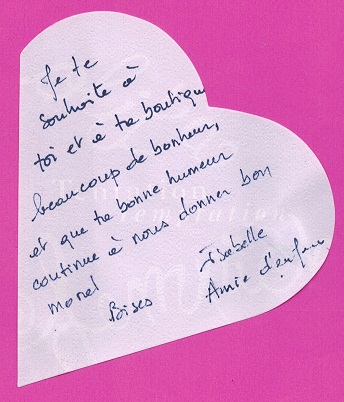 Je te
souhaite à
toi et à ta boutique
beaucoup de bonheur,
et que ta bonne humeur
continue à nous donner bon
moral
Bises
Isabelle
Amie d'enfance
Tentation
Temptation